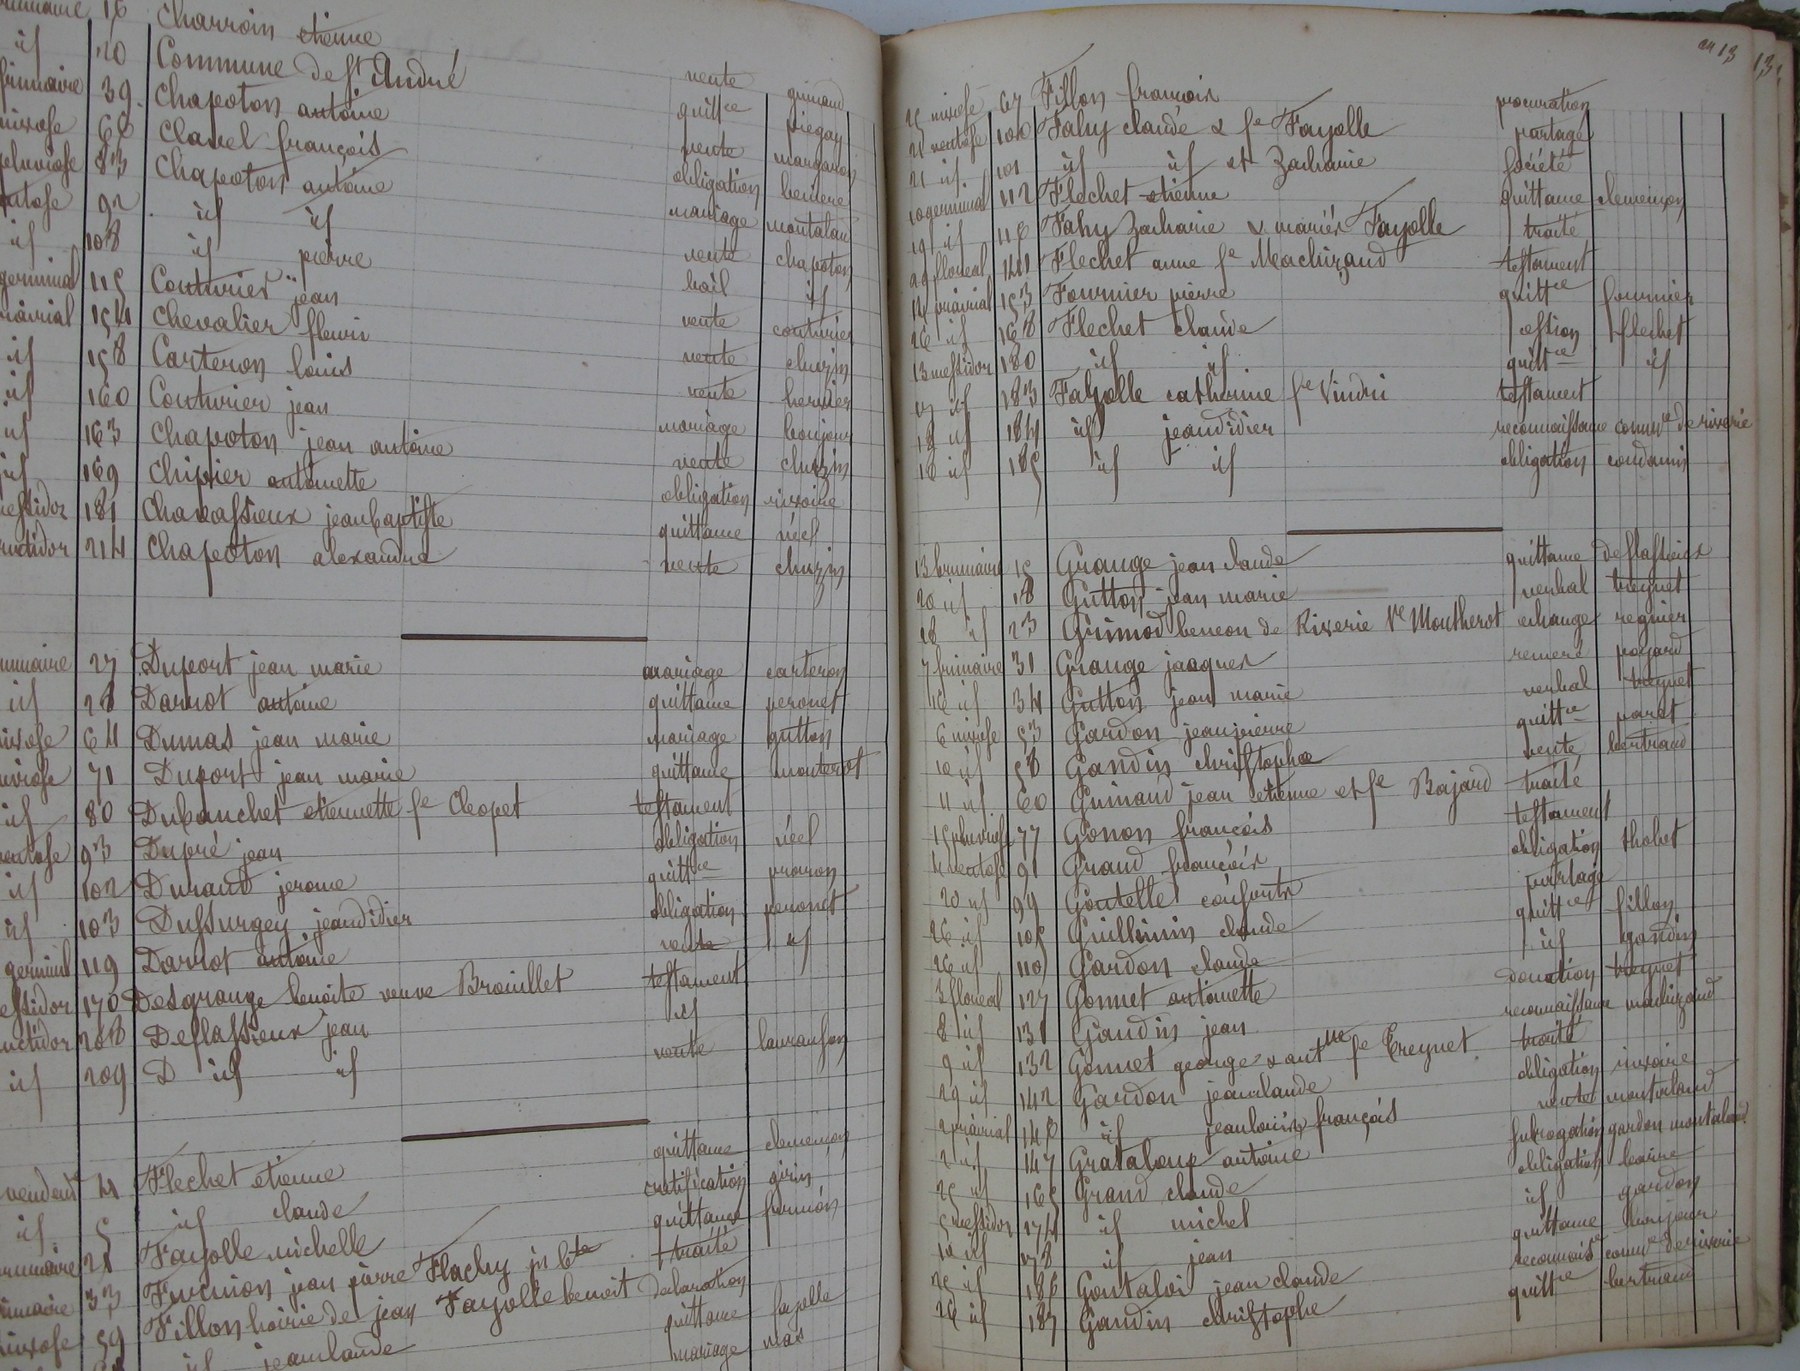 16 Charroin etienne
id 20 Commune de St André vente grimaud
frimaire 39 Chapoton antoine quitt.ce piegay
nivose 66 Clavel françois vente margaron
pluviose 83 Chapoton antoine obligation
ventose 92 id id mariage montaland
id 108 id pierre vente chapoton
germinal 115 Couturier jean bail id
prairial 154 Chevalier fleuri vente couturier
id 158 Carteron louis vente chuzin
id 160 Couturier jean vente hervier
id 163 Chapoton jean antoine mariage boujour
id 169 Chipier antoinette vente chuzin
messidor 181 Chavassieux jean baptiste obligation rivoire
fructidor 214 Chapoton alexandre quittance réel
vente chuzin
brumaire 27 Duport jean marie mariage carteron
id 28 Darnot antoine quittance peronet
nivose 64 Dumas jean marie mariage gutton
nivose 71 Duport jean marie quittance monterot
id 80 Dubanchet etiennette fe Cleopet testament
ventose 93 Dupré jean obligation réel
id 102 Durand jerome quitt.ce
id 103 Dussurgey jean didier obligation peronet
germinal 119 Darnot antoine vente id
messidor 170 Desgrange benoite veuve Brouillet testament
fructidor 208 Deflassieux jean id
id 209 D id id vente lauranson
vendem 4 Flechet etienne quittance clemençon
id 5 id claude ratification girin
brumaire 21 Fayolle michelle quittance furnion
frimaire 33 Furnion jean pierre Flachy jn bte traité
nivose 59 Fillon hoirie de jean Fayolle benoit declaration
id jean claude quittance fayolle
mariage mas
an 13 13
25 nivose 67 Fillon francois procuration
21 ventose 100 Fahy claude & fe Fayolle partage
21 id 101 id id et Zacharie société
10 germinal 112 Flechet etienne quittance clemençon
19 id 116 Fahy Zacharie & mariés Fayolle traité
20 floreal 141 Flechet anne fe Machizaud testament
14 prairial 153 Fournier pierre quitt.ce fournier
26 id 168 Flechet claude cession flechet
13 messidor 180 id id quitt.ce id
17 id 183 Fayolle catherine fe Vindri testament
18 id 184 id jean didier reconnaissance comm.e de riverie
18 id 185 id id obligation condamin
13 brumaire 15 Grange jean claude quittance deflassieux
20 id 18 Gutton jean marie verbal treynet
28 id 23 Grimod beneon de Riverie Ve Moutherot echange regnier
7 frimaire 31 Grange jacques remere poyard
16 id 34 Gutton jean marie verbal treynet
6 nivose 53 Gardon jean pierre quitt.ce paret
10 id 58 Gandin christophe vente bertrand
11 id 60 Grimaud jean etienne et fe Bajard traité
15 pluviose 77 Gonon françois testament
4 ventose 91 Grand françois obligation tholet
20 id 99 Goutelle consorts partage
26 id 105 Guillemin claude quitt.ce fillon
26 id 110 Gardon claude id gandin
3 floreal 127 Gonnet antoinette donation treynet
8 id 131 Gandin jean reconnaissance machizaud
9 id 132 Gonnet george & ant.tte fe Treynet traité
29 id 142 Gardon jean claude obligation rivoire
2 prairial 146 id jean louis & françois vente montaland
2 id 147 Grataloup antoine subrogation gardon montaland
25 id 165 Grand claude obligation
5 messidor 174 id michel id gardon
10 id 178 id jean quittance boujour
25 id 186 Gontaloi jean claude reconnais.ce comm.e de riverie
26 id 187 Gandin christophe quitt.ce bertrand